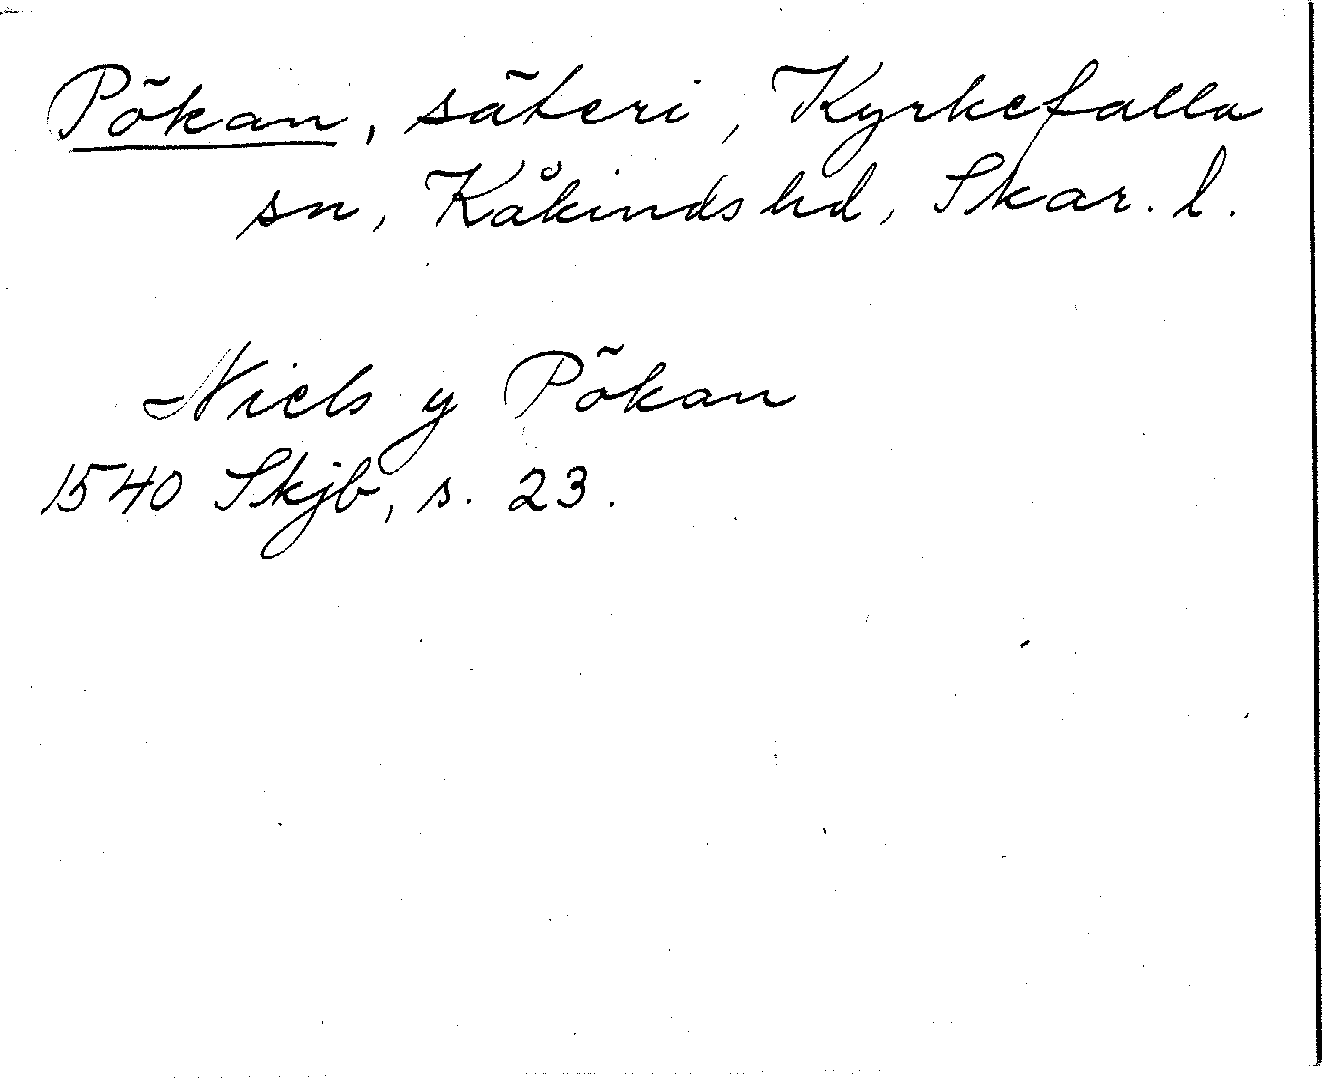 Pökan, säteri, Kyrkefalla
sn, Kåkinds hd, Skar. l.
Niels y Pökan
1540 Skjb, s. 23.